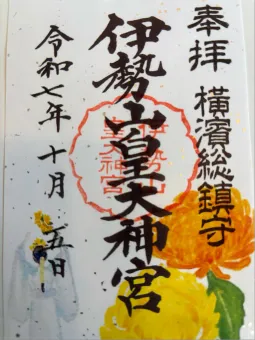 奉拝
横濱総鎮守
伊勢山皇大神宮
伊勢山
皇大神宮
令和七年十月五日